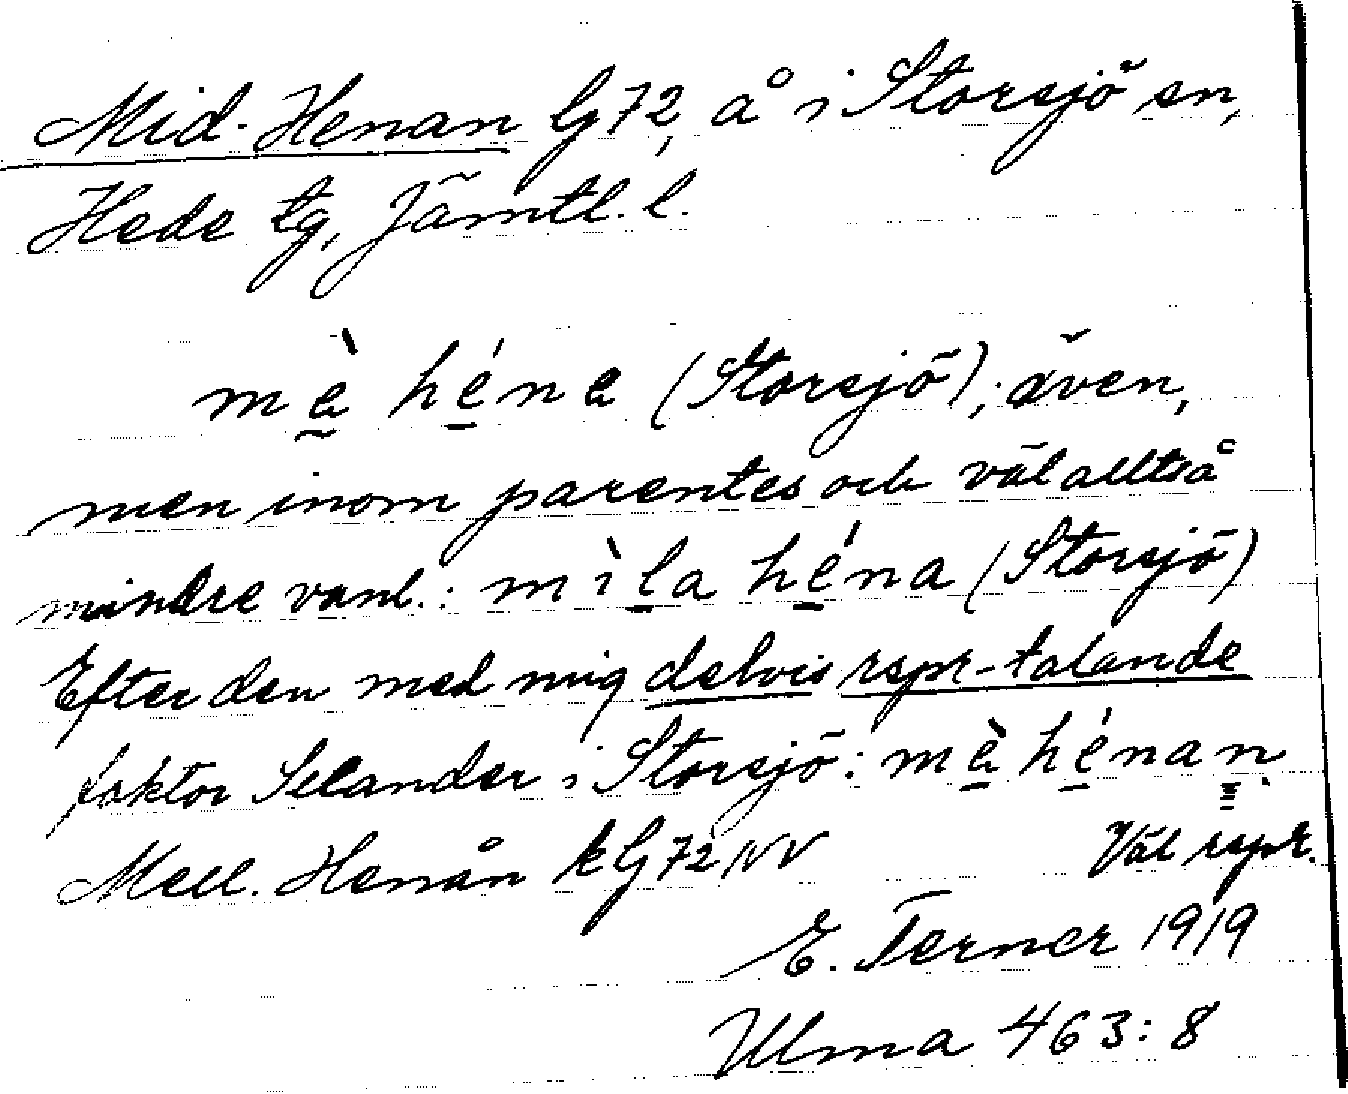 Mid-Henan G72, å i Storsjö sn,
Hede tg, Jämtl. l.
mæ̀ héne (Storsjö); även,
men inom parentes och väl alltså
mindre vanl.: mìla héna (Storsjö)
Efter den med mig delvis rspr-talande
faktor Selander i Storsjö: mæ̀ hénan.
Mell. Henån k G72 NV Väl rspr.
E. Terner 1919
Ulma 463:8